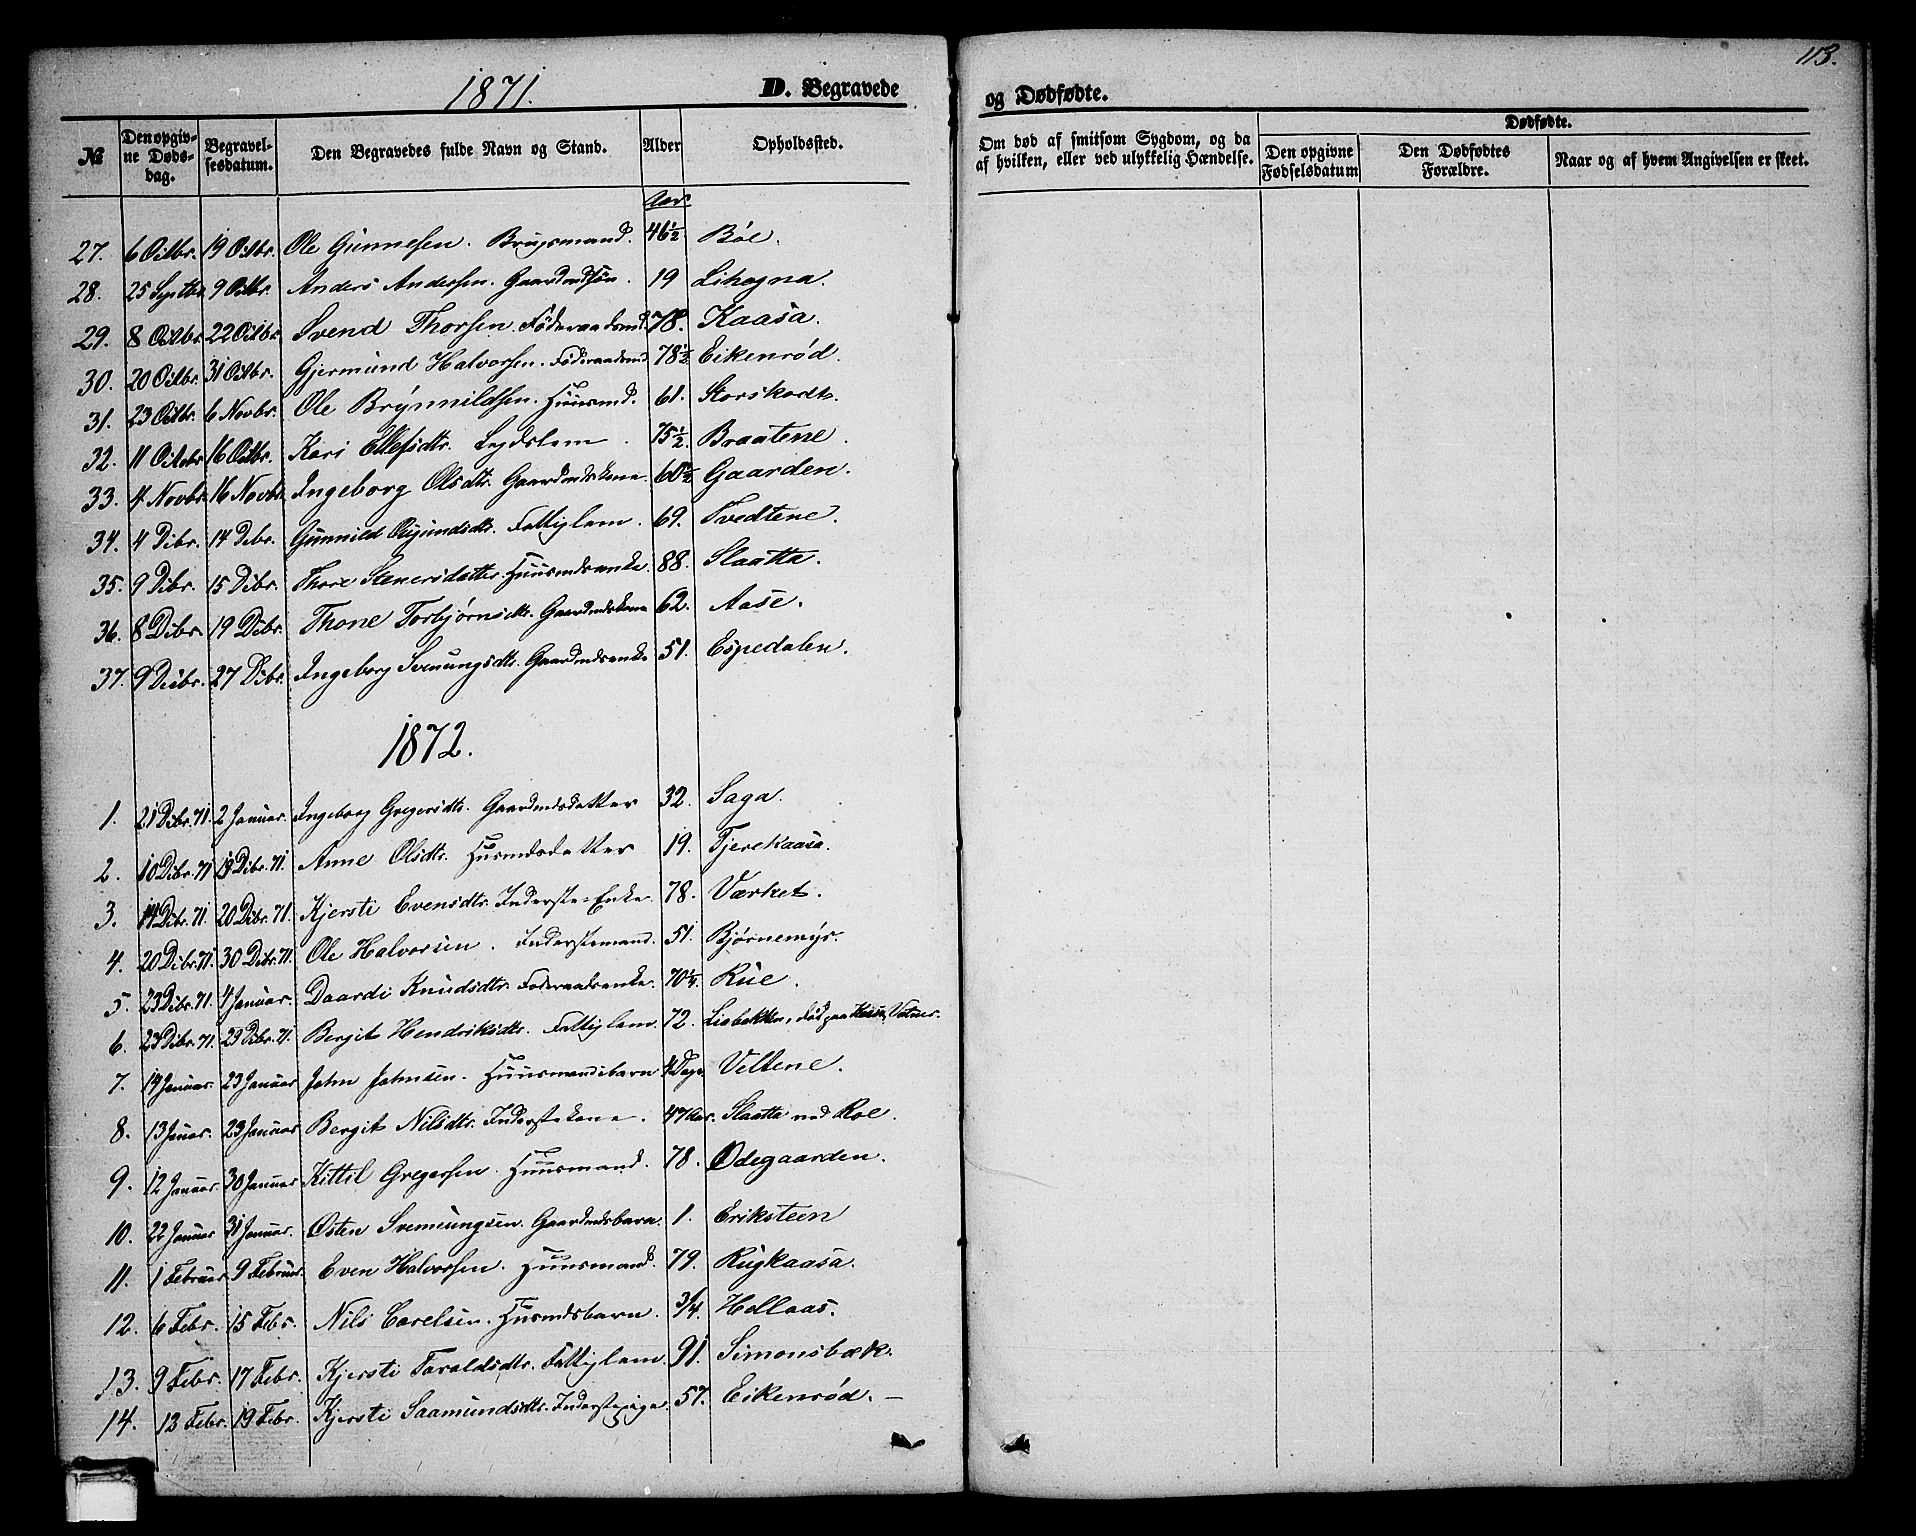 113.
1871.
D. Begravede
og Dødfødte.
№ Den opgivne Dødsdag. Begravelsesdatum. Den Begravedes fulde Navn og Stand. Alder Opholdssted.
Om død af smitsom Sygdom, og da af hvilken, eller ved ulykkelig Hændelse. Dødfødte. Den opgivne Fødselsdatum Den Dødfødtes Forældre. Naar og af hvem Angivelsen er skeet.
Aar
27. 6 Octbr. 19 Octbr. Ole Gunnesen. Brugsmand. 46 1/2 Bøe.
28. 25 Septbr. 9 Octbr. Anders Andersen. Gaardmdsøn. 19 Lihogna.
29. 8 Octbr. 22 Octbr. Svend Thorsen. Føderaadsmd. 78. Kaasa.
30. 20 Octbr. 31 Octbr. Gjermund Halvorsen. Føderaadsmd 78 1/2 Eikenrød.
31. 23 Octbr. 6 Novbr. Ole Brynnildsen. Huusmd. 61. Storskordt.
32. 11 Octobr 16 Octbr. Kari Ellefsdtr. Legdslem. 75 1/2. Braatene.
33. 4 Novbr. 16 Novbr. Ingeborg Olsdtr. Gaardmdskone. 60 1/2 Gaarden.
34. 4 Dcbr. 14 Dcbr. Gunnild Fattiglem. 69. Tvedtene.
35. 9 Dcbr. 15 Dcbr. Thore Stenersdatter. Huusmdsenke. 88. Slaatta.
36. 8 Dcbr. 19 Dcbr. Thone Torbjørnsdtr. Gaardmdskone 62. Aase.
37. 9 Decbr. 27 Dcbr. Ingeborg Svenungsdtr. Gaardmdsenke 51. Espedalen.
1872.
1. 21 Dcbr. 71. 2 Januar. Ingeborg Gregersdtr. Gaardmdsdatter 32. Saga.
2. 10 Dcbr. 71 19 Dcbr. 71. Anne Olsdtr. Husmdsdatter 19. Tjerekaasa.
3. 14 Dcbr. 71. 20 Dcbr. 71. Kjersti Evensdtr. Inderste-Enke. 78. Værket.
4. 20 Dcbr. 71. 30 Dcbr. 71. Ole Halvorsen. Inderstemand. 51. Bjørnemyr.
5. 23 Dcbr. 71. 4 Januar. Daardi Knudsdtr. Føderaadsenke. 70 1/4 Rue.
6. 23 Dcbr. 71. 29 Dcbr. 71. Bergit Hendriksdtr. Fattiglem. 72. Liabakken, død paa
7. 14 Januar. 23 Januar John Johnsen. Huusmandsbarn 4 Dage. Veltene.
8. 13 Januar. 23 Januar Bergit Nilsdtr. Inderstekone. 47 Aar. Slaatta ved Roe.
9. 12 Januar. 30 Januar Kittil Gregersen. Huusmand. 78. Ødegaarden.
10. 22 Januar 31 Januar. Østen Svenungsen. Gaardmdsbarn. 1. Eriksteen
11. 1 Februar 9 Februar. Even Halvorsen. Huusmand. 79. Rugkaasa.
12. 6 Febr. 15 Febr. Nils Carelsen. Husmdsbarn. 3/4. Hellaas.
13. 9 Febr. 17 Febr. Kjersti Taraldsdtr. Fattiglem. 91. Simonsbæk.
14. 12 Febr. 19 Febr. Kjersti Saamundsdtr. Inderstepige 57. Eikenrød. —